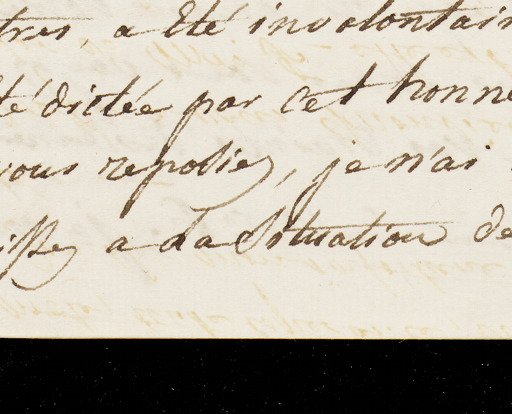 tres, a été involontair
té dictée par cet honne
vous repoliez, je n'ai
issez a la Situation de